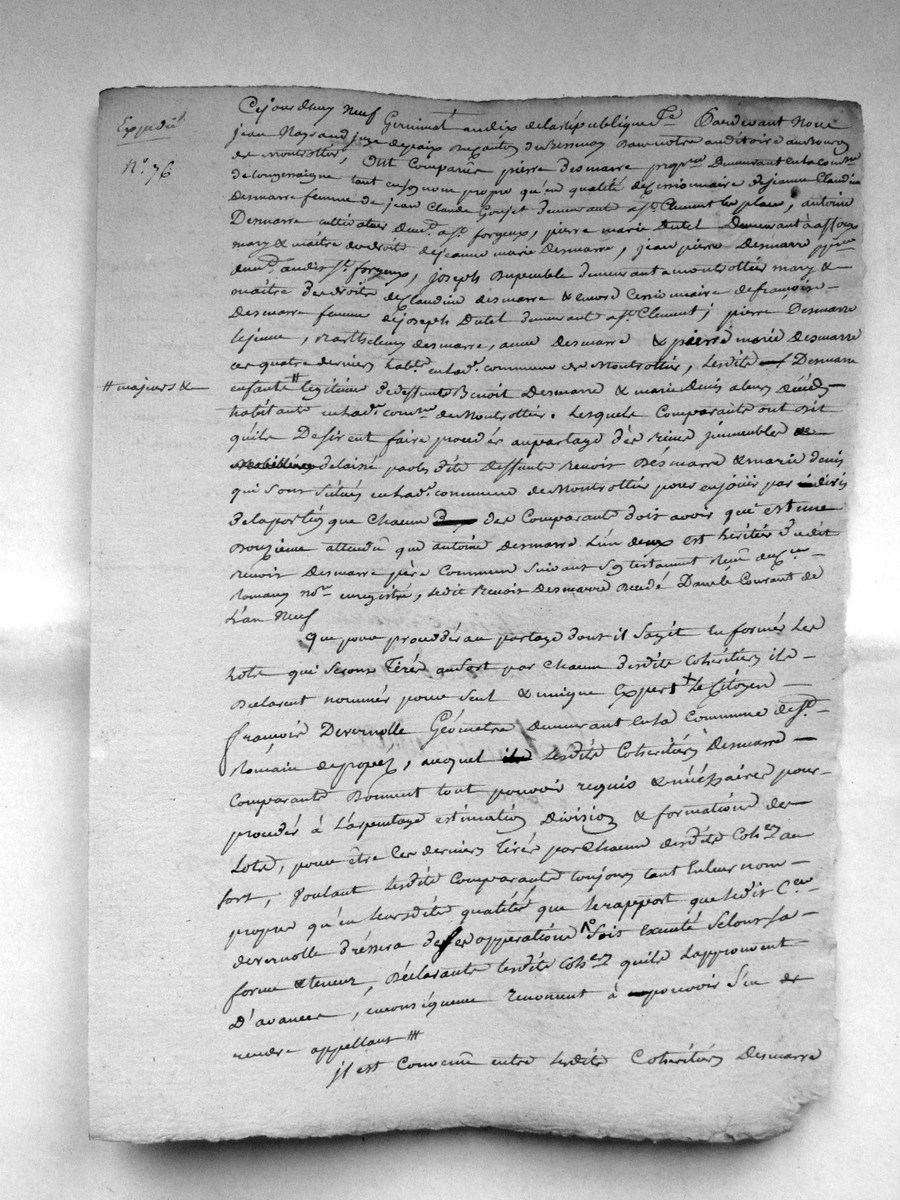 Expédié
N.° 76
Cejourdhuy Neuf Germinal an dix de la République f.se Pardevant Nous
jean Raynaud juge de paix du Canton du Bessenay Dans notre auditoire au Bourg
de Montrottier, Ont Comparûs pierre desmarre prop.re Demeurant en la Com.ne
de longessaigne tant en son nom propre qu'en qualité de Cessionnaire de jeanne Claudine
Desmarre femme de jean Claude Goujet demeurant a st. Clement les places, antoine
Desmarre cultivateur dem.t a st. forgeux, pierre marie Dutel Demeurant à affoux
mary & maitre des droits de jeanne marie Desmarre, jean pierre Desmarre
dem.t audit st. forgeux, joseph Dupeuble demeurant a montrottier mary &
maitre des droits de Claudine desmarre & encore Cessionnaire de françoise
Desmarre femme de joseph Dutel demeurant a st. Clement; pierre Desmarre
le jeune, Barthelemy desmarre, anne desmarre & pierre marie desmarre
ces quatre derniers habit. en lad.e commune de Montrottier, lesdits Desmarre
# majeurs &
enfants # legitimes de deffunts Benoit Desmarre & marie Denis a leurs décèds
habitants en lad.e Com.ne de Montrottier. Lesquels Comparants ont dit
qu'ils Desirent faire proceder au partage des biens jmmeubles
delaissé par lesdits deffunts Benoit Désmarre & marie denis
qui sont situés en lad.e commune de Montrottier pour en jouir par
de la portion que Chacun des Comparants doit avoir qui est une
Douzieme attendu que antoine Desmarre l'un deux est heritier dudit
Benoit Desmarre père Commun suivant son testament Reçu
romany no.re enregistré, ledit Benoit desmarre Decedé Dans le Courant de
L'an Neuf
Que pour proceder au partage dont il s'agit en former les
lots qui seront tirés au sort par Chacun desdits Cohéritiers ils
Déclarent nommer pour seul & unique Expert + le Citoyen
françois Devernolle Géomètre demeurant en la Commune de st.
romain de popey, auquel lesdits Coheritiers Desmarre
Comparants Donnent tout pouvoir requis & nécessaires pour
proceder à L'arpentage estimation Division & formation des
Lots, pour être Ces derniers tirés par Chacun desdits Coh.ers au
sort, Voulant Lesdits Comparants toujours tant en leur nom
propre qu'en leursdites qualités que le rapport que ledit C.en
devernolle dréssera de ses opperations soit Exécuté selon sa
forme & teneur, Déclarants lesdits Coh.ers qu'ils L'approuvent
D'avance, en conséquence renoncent à pouvoir s'en
rendre appellants #
jl est Convenu entre lesdits Coheritiers Desmarre